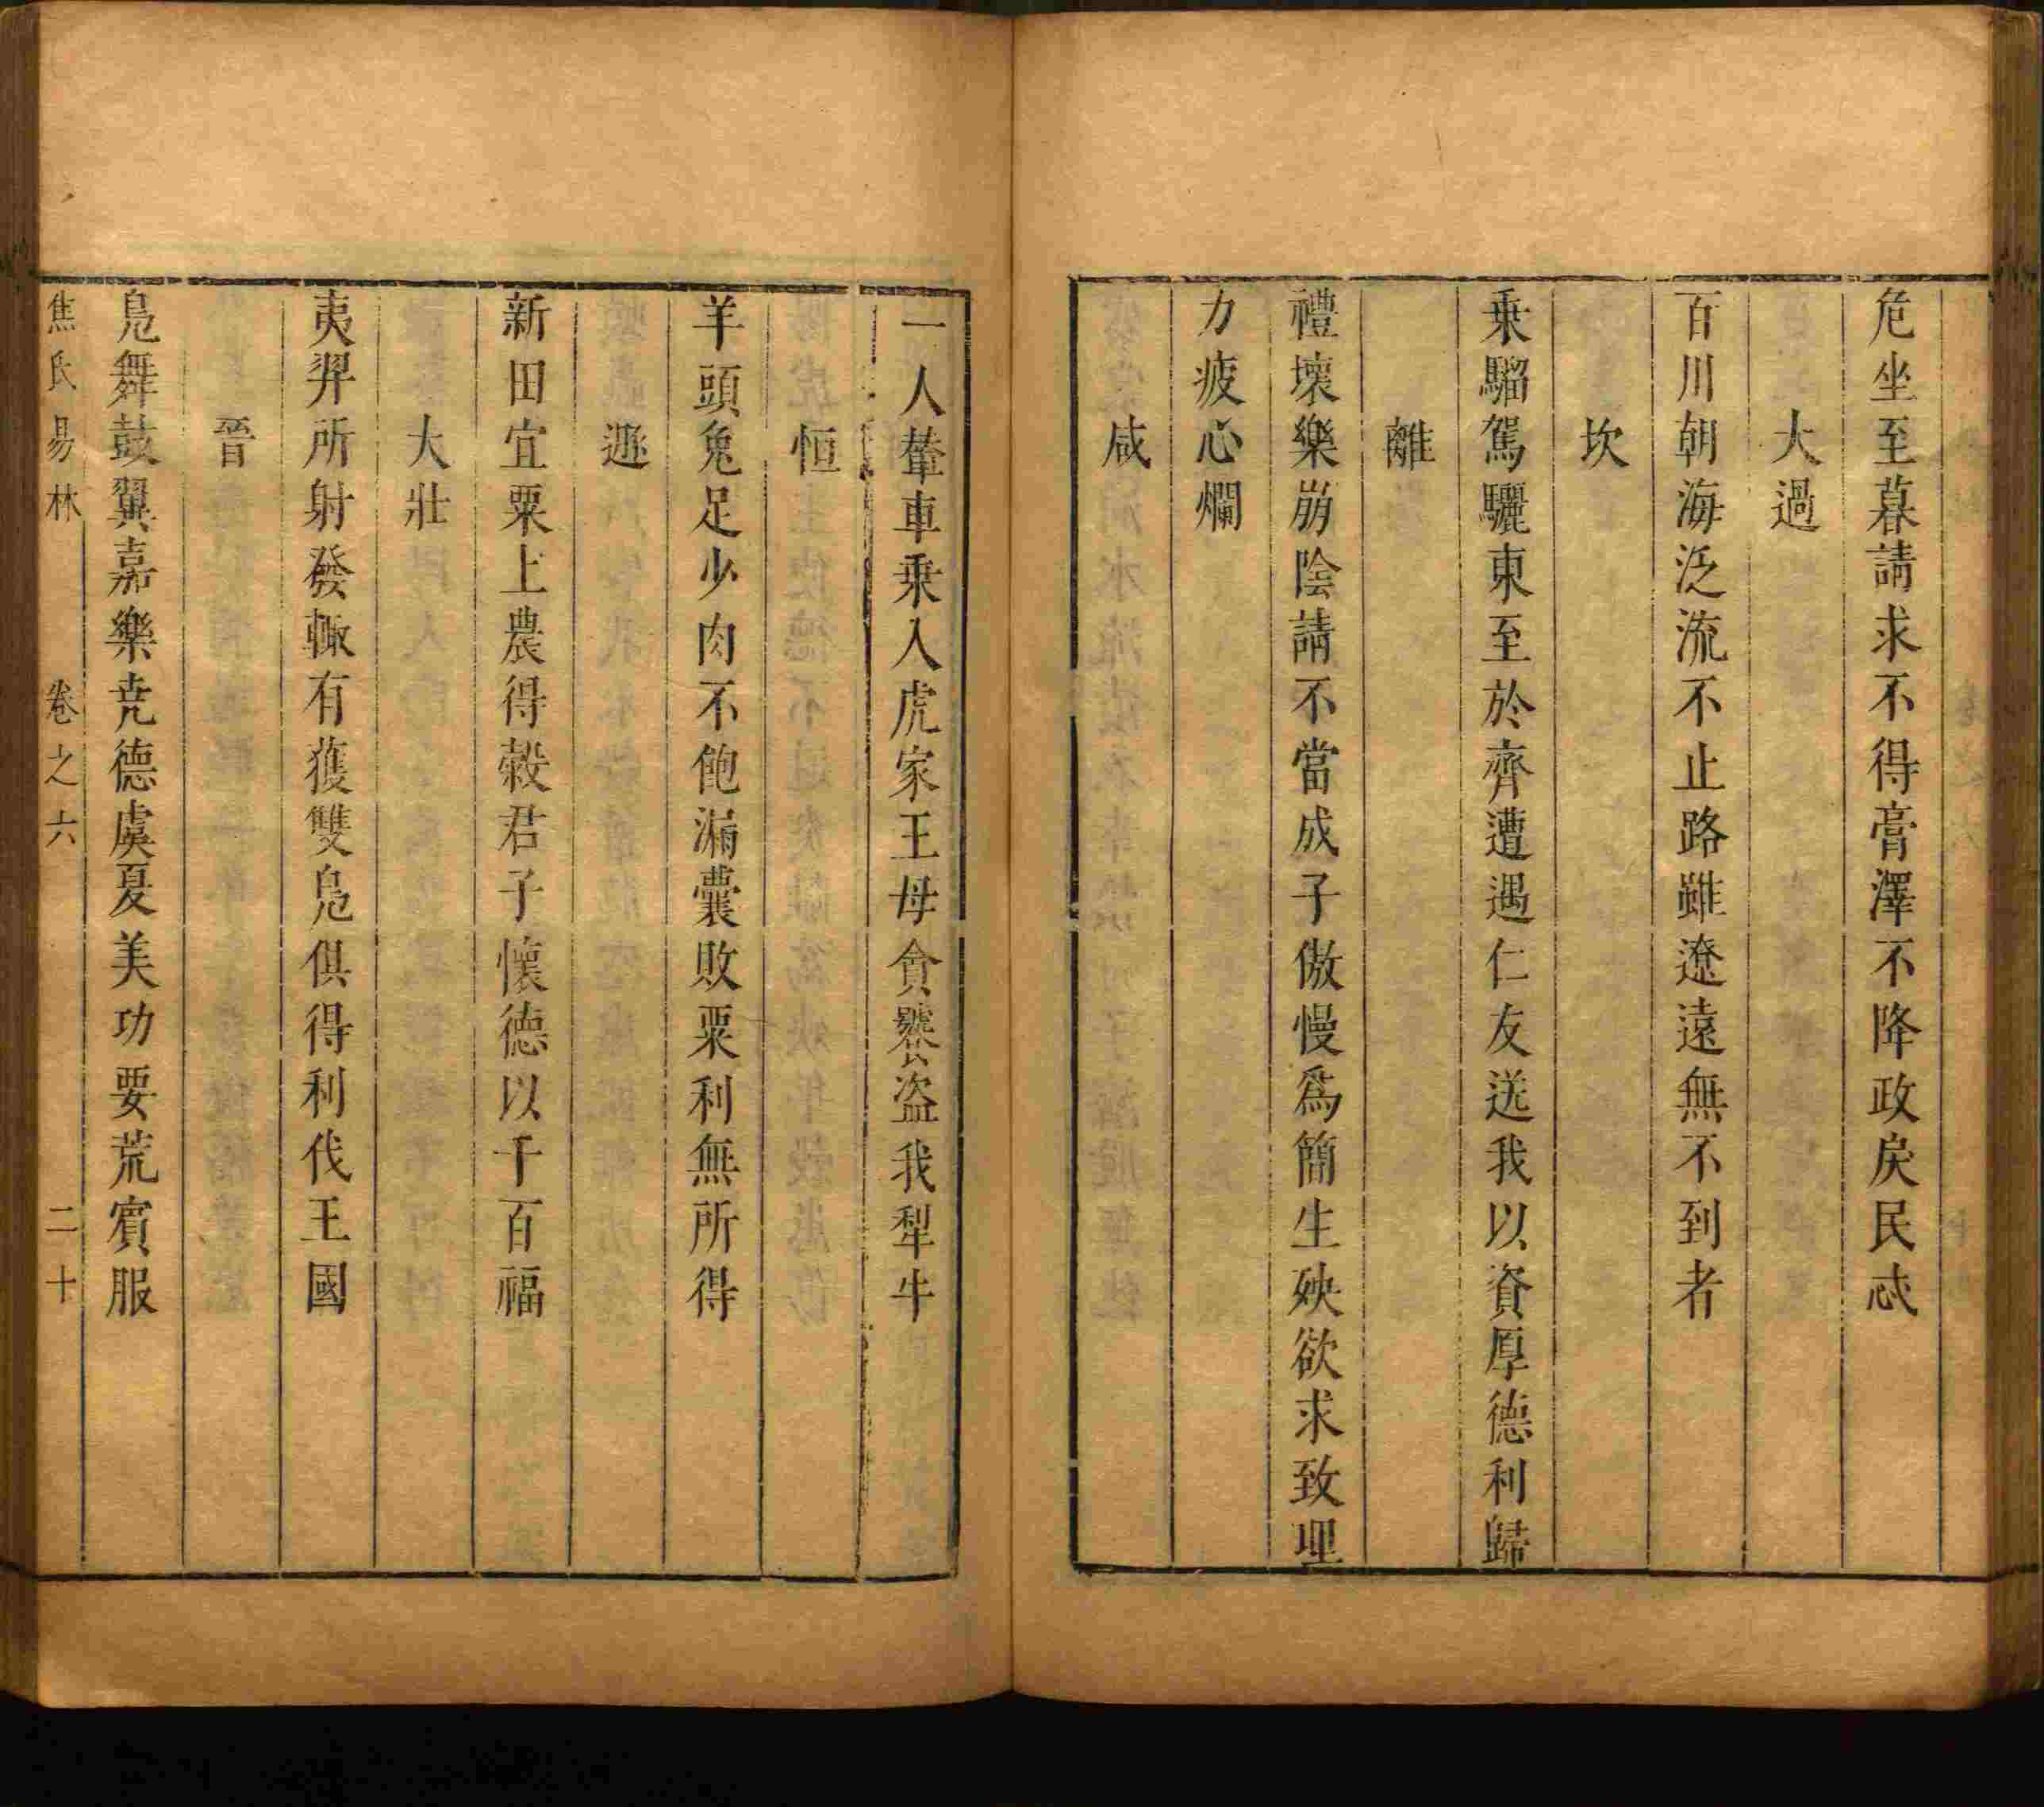 危坐至暮請求不得膏澤不降政戾民忒
大過
百川朝海泛流不止路雖遼遠無不到者
坎
乗騮駕驪東至於齊遭遇仁友送我以資厚德利歸
離
禮壞樂崩陰請不當成子傲慢爲簡生殃欲求致理
力疲心爛
咸
一人輦車乗入虎家王母貪饕盜我犁牛
恒
羊頭兔足少肉不飽漏囊敗粟利無所得
遯
新田宜粟上農得榖君子懷德以千百福
大壯
夷羿所射發輙有獲雙鳬俱得利伐王國
晉
鳬舞鼓翼嘉樂尭德虞夏美功要荒賔服
焦氏易林 卷之六 二十